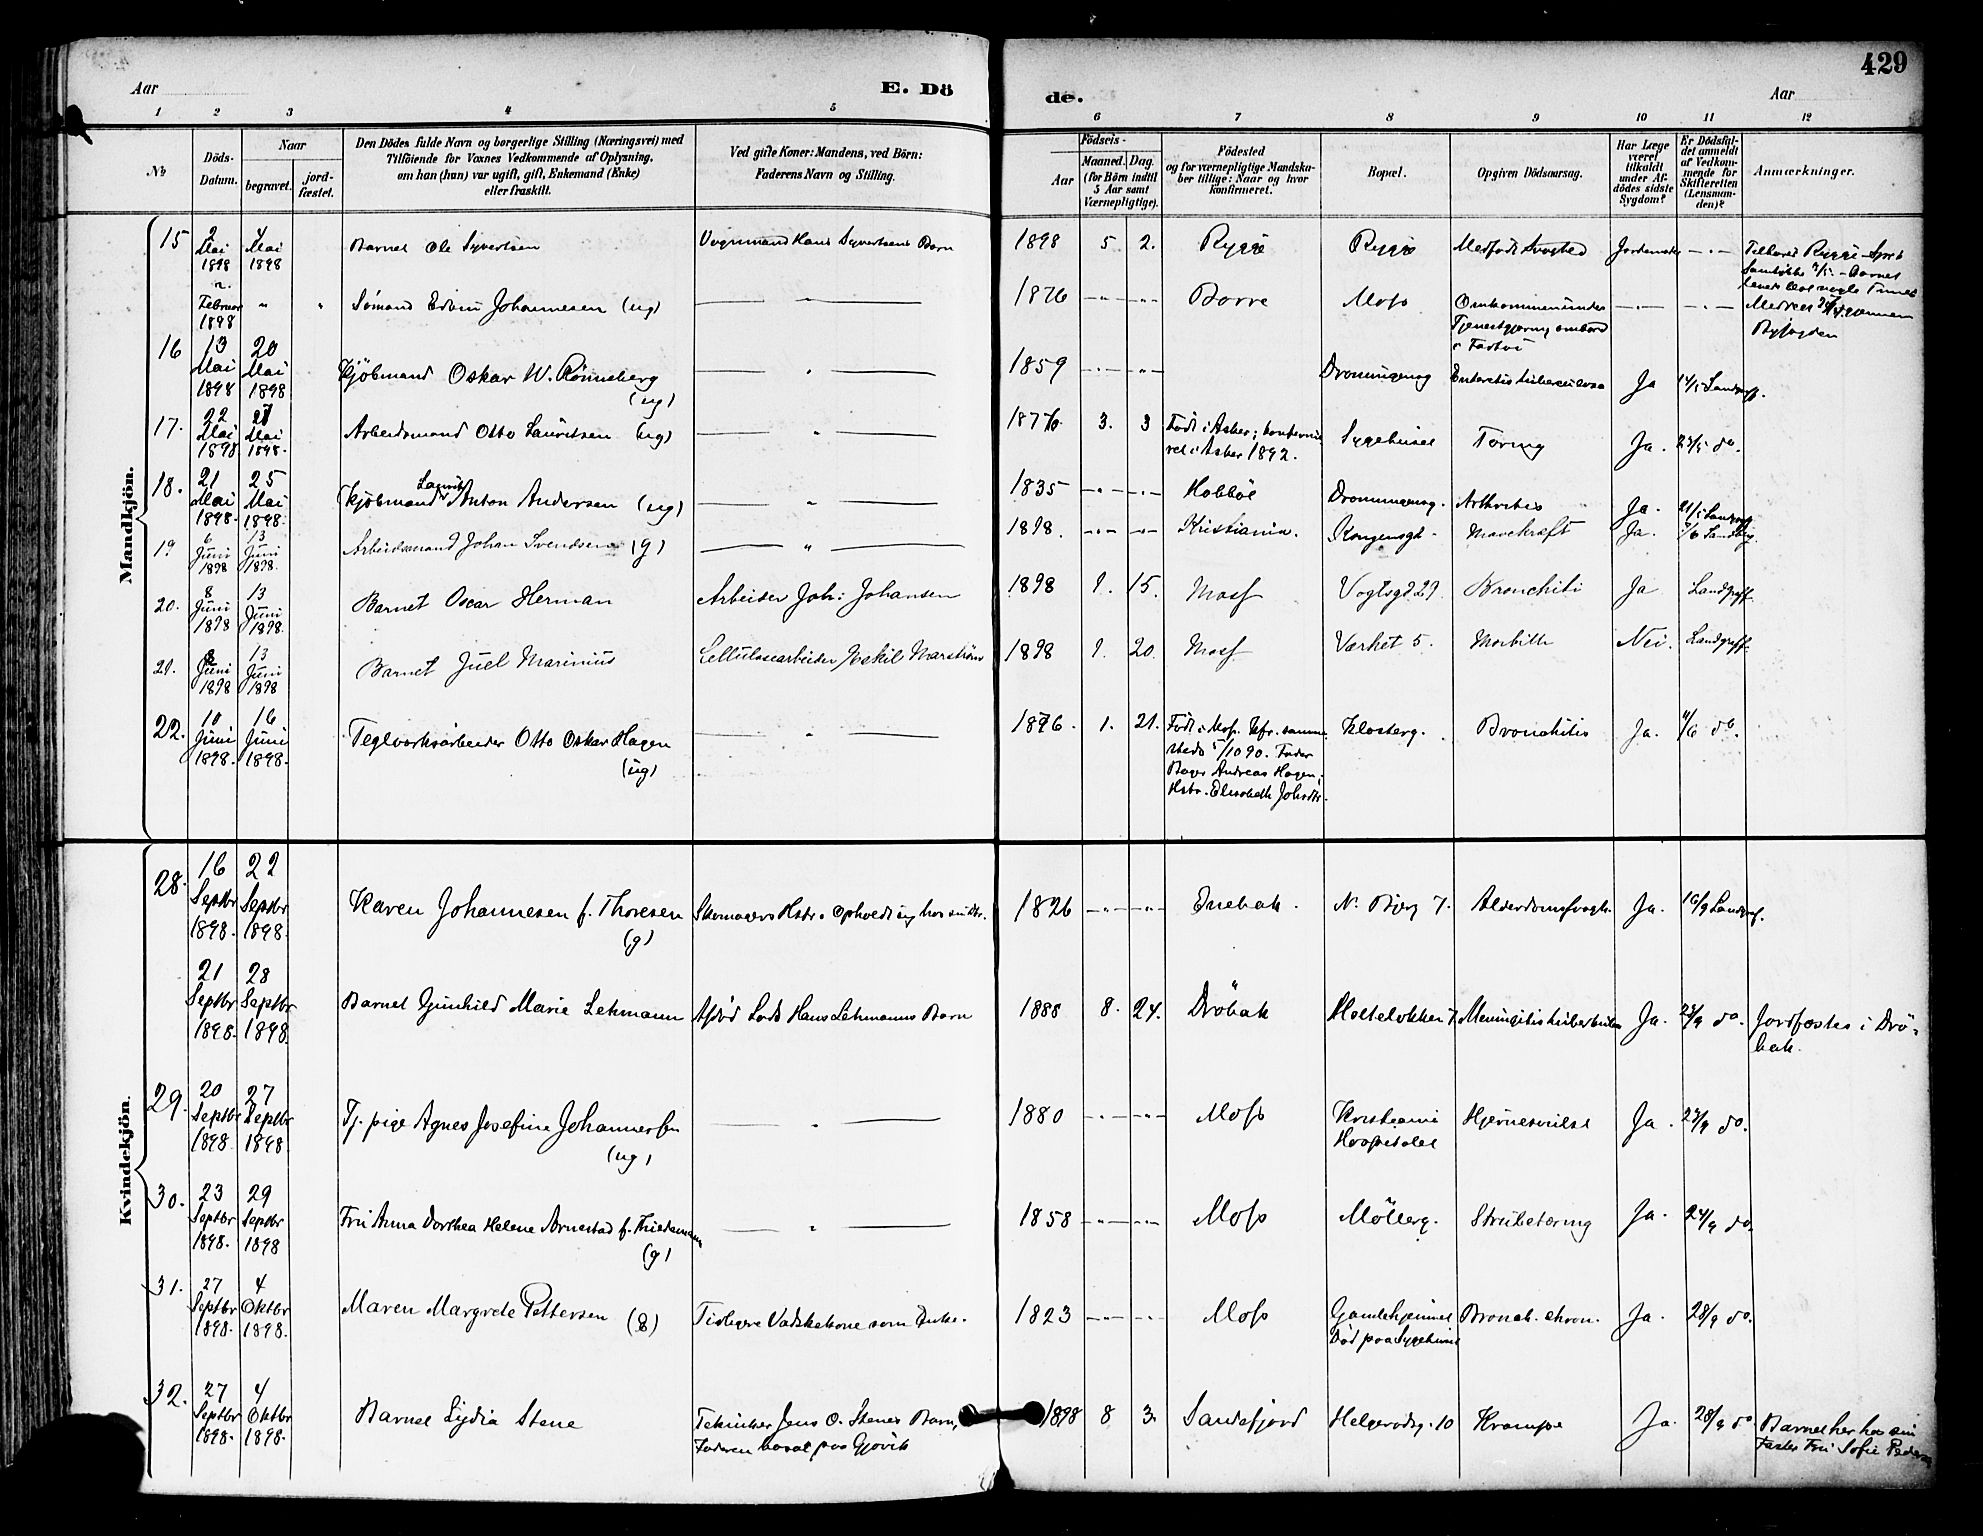 429
Aar
E. Dö
de.
Aar
1 2 3 4 5 6 7 8 9 10 11 12
No
Döds-
Datum.
Naar
begravet.
jord-
fæstet.
Den Dödes fulde Navn og borgerlige Stilling (Næringsvei) med
Tilföiende for Voxnes Vedkommende af Oplysning,
om han (hun) var ugift, gift, Enkemand (Enke)
eller fraskilt.
Ved gifte Koner: Mandens, ved Börn:
Faderens Navn og Stilling.
Födsels-
Aar
Maaned. Dag.
(for Börn indtil
5 Aar samt
Værnepligtige).
Födested
og for værnepligtige Mandska-
ber tillige: Naar og hvor
konfirmeret.
Bopæl.
Opgiven Dödsaarsag.
Har Læge
været
tilkaldt
under Af-
dödes sidste
Sygdom?
Er Dödsfal-
det anmeldt
af Vedkom-
mende for
Skifteretten
(Lensman-
den)?
Anmærkninger.
Mandkjön.
15 2 Mai 1898 4 Mai 1898 Barnet Ole Syvertsen Vognmand Hans Syvertsens Barn 1898 5. 2. Rygge Rygge Medfødt Svaghed — " —
2. Februar 1898 " " Sømand Edvin Johannesen (ug) — " — 1876 — " — — " — Borre Moss Omkommen under
Tjenestgjøring ombord
— " — — " —
Byfogden
16 13 Mai 1898 20 Mai 1898 Kjöbmand Oskar W. Rönneberg
(ug)
— " — 1859 — " — " — Dronningensg Enteritis tuberculosa Ja 14/5 Landgrff.
17. 22 Mai 1898 27 Mai 1898. Arbeidsmand Otto Lauritsen (ug) — " — 1876. 3. 3 Født i Asker; konfirme-
ret i Asker 1892.
Sygehuset Tæring Ja. 23/5 do.
18. 21 Mai 1898. 25 Mai 1898. Kjøbmand Laurits Anton Andersen (ug) — " — 1835 — " — — " — Hobböl Dronningensg. Arthritis Ja. 21/5 Landgrff
19 6 Juni 1898 13 Juni 1898. Arbeidsmand Johan Svendsen (g) — " — 1898. — " — — " — Kristiania. Kongensgt. Mavekræft Ja. 7/6
20. 8 Juni 1898 13 Juni 1898. Barnet Oscar Herman Arbeider Joh: Johansen 1898 1. 15. Moss Vogtsgd 29. Bronchiti Ja Landgrff.
21. 8 Juni 1898 13 Juni 1898 Barnet Juel Marinius Cellulosearbeider Eskil Marström 1898 1. 20. Moss Værket 5. Morbilli Nei. Landgrff.
22. 10 Juni 1898. 16 Juni 1898. Teglværksarbeider Otto Oskar Hagen
(ug)
— " — 1876. 1. 21. Født i Moss. Kfr. samme-
steds 5/10 90. Fader
Bager Andreas Hagen,
Hstr. Elisabeth Johsdtr.
Klosterg. Bronchitis Ja. 11/6 do
Kvindekjön.
28. 16 Septbr 1898. 22 Septbr 1898. Karen Johannesen f. Thoresen
(g)
1826 — " — — " — Enebak. N. Bjerg 7. Alderdomssvagh. Ja. 16/9 Landgrf.
21 Septbr 1898. 28 Septbr 1898. Barnet Gunhild Marie Lehmann Afdød Lods Hans Lehmanns Barn 1888 8. 24. Dröbak 7. Meningitis tuberkulos Ja. 23/9 do. Jordfæstes i Drö-
bak.
29. 20 Septbr 1898. 27 Septbr 1898. Tj. pige Agnes Josefine Johannessen
(ug)
— " — 1880 — " — — " — Moss Kristiania
Hospitalet
Hjernesvulst Ja. 27/9 do.
30. 23 Septbr 1898. 29 Septbr 1898 Fru Anna Dorthea Helene Arnestad f. Friedemann
(g)
— " — 1858 — " — — " — Moss Möllerg. Strubetæring Ja. 24/9 do.
31. 27 Septbr 1898. 4 Oktbr 1898. Maren Margrete Pettersen (E) Tidligere Vadskekone som Enke. 1823 — " — — " — Moss Gamlehjemmet
Död paa Sygehuset
Bronch. chron. Ja. 28/9 do.
32. 27 Septbr 1898. 4 Oktbr 1898. Barnet Lydia Stene Tekniker Jens O. Stenes Barn,
Faderen bosat paa Gjøvik
1898 8 3. Sandefjord Helgerödg. 10 Krampe Ja. 28/9 do Barnet her hos sin
Faster Fru Sofie Pedersen